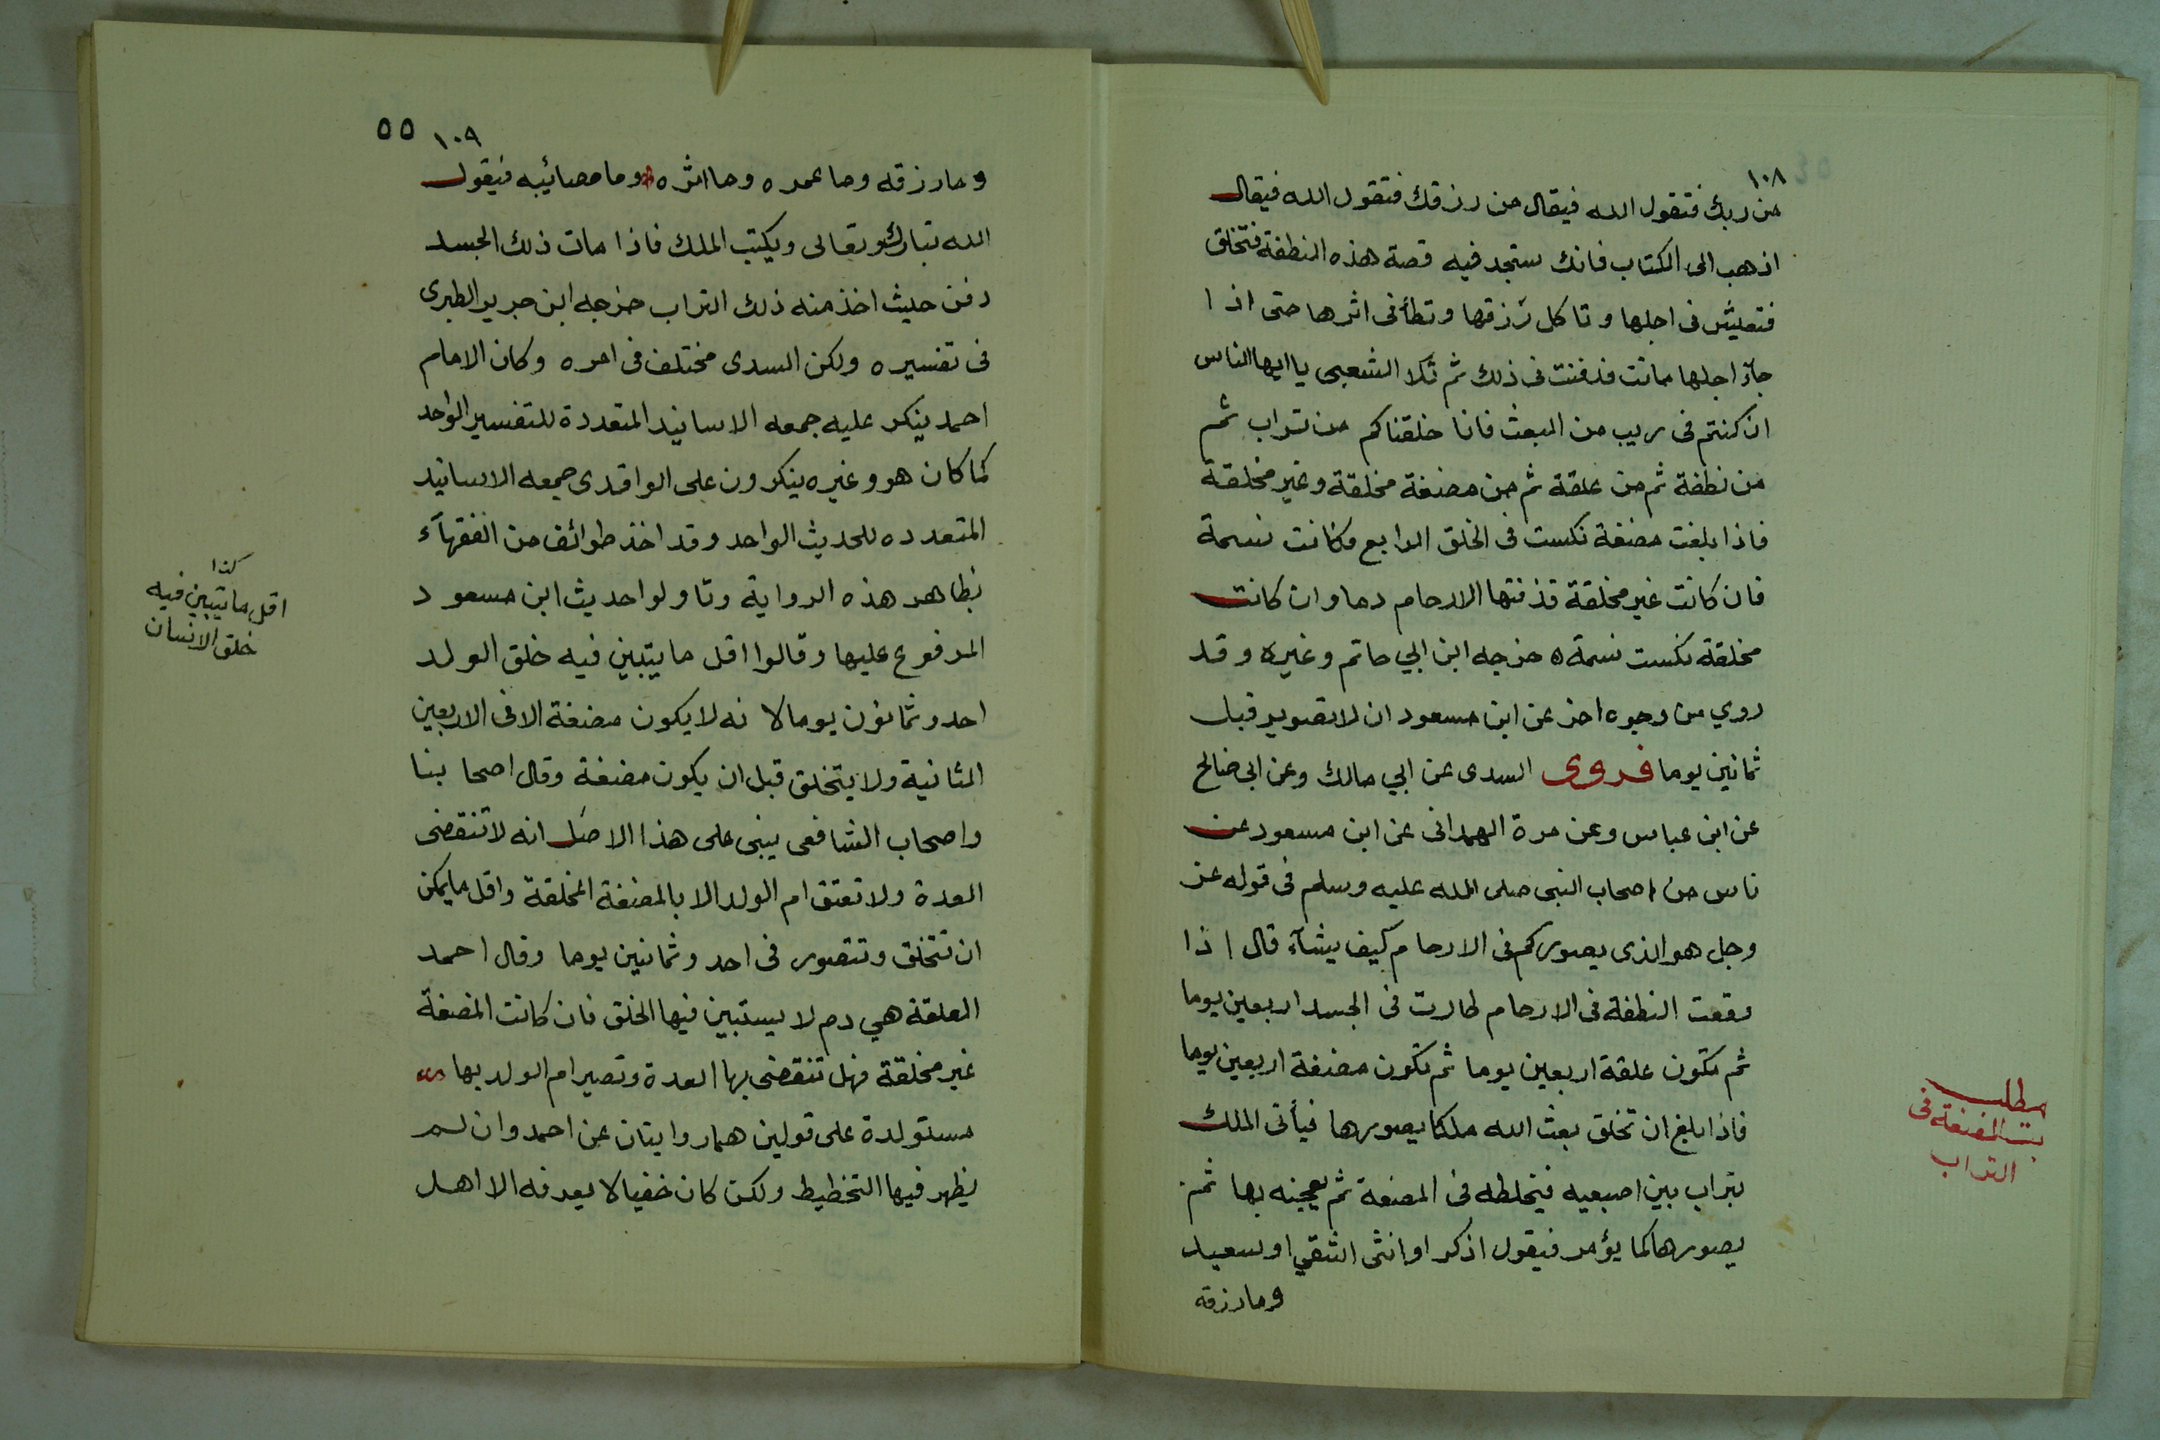 ١٠٨
من ربك فتقول الله فيقال من رزقك فتقول الله فيقال
اذهب الى الكتاب فانك ستجد فيه قصة هذه النطفة فتخلق
فتعيش فى اجلها وتاكل رزقها وتطأ فى اثرها حتى اذا
جآء اجلها ماتت فدفنت فى ذلك ثم تلا الشعبى يا ايها الناس
ان كنتم فى ريب من البعث فانا خلقناكم من تراب ثم
من نطفة ثم من علقة ثم من مضغة مخلقة وغير مخلقة
فاذا بلغت مضغة نكست فى الخلق الرابع فكانت نسمة
فان كانت غير مخلقة قذفتها الارحام دما وان كانت
مخلقة نكست نسمة ه خرجه ابن ابي حاتم وغيره وقد
روي من وجوه اخر عن ابن مسعود ان لا تصوير قبل
ثمانين يوما فروى السدى عن ابي مالك وعن ابى صالح
عن ابن عباس وعن مرة الهمدانى عن ابن مسعود عن
ناس من اصحاب النبى صلى الله عليه وسلم فى قوله عز
وجل هو الذى يصوركم فى الارحام كيف يشآء قال اذا
وقعت النطفة فى الارحام طارت فى الجسد اربعين يوما
ثم تكون علقة اربعين يوما ثم تكون مضغة اربعين يوما
فاذا بلغ ان تخلق بعث الله ملكا يصورها فيأتى الملك
بتراب بين اصبعيه فيخلطه فى المضغة ثم يعجنه بها ثم
يصورها كما يؤمر فيقول اذكر او انثى اشقي او سعيد
وما رزقه
مطلب
المضغة فى
التراب
١٠٩ ٥٥
وما رزقه وما عمره وما اثره وما مصائبه فيقول
الله تبارك وتعالى ويكتب الملك فاذا مات ذلك الجسد
دفن حيث اخذ منه ذلك التراب خرجه ابن جرير الطبرى
فى تفسيره ولكن السدى مختلف فى امره وكان الامام
احمد ينكر عليه جمعه الاسانيد المتعددة للتفسير الواحد
كما كان هو وغيره ينكرون على الواقدى جمعه الاسانيد
المتعدده للحديث الواحد وقد اخذ طوائف من الفقهآء
بظاهر هذه الرواية وتاولوا حديث ابن مسعود
المرفوع عليها وقالوا اقل ما يتبين فيه خلق الولد
احد وثمانون يوما لا نه لا يكون مضغة الا فى الاربعين
الثانية ولا يتخلق قبل ان يكون مضغة وقال اصحا بنا
واصحاب الشافعى يبنى على هذا الاصل انه لا تنقضى
العدة ولا تعتق ام الولد الا بالمضغة المخلقة واقل ما يمكن
ان تتخلق وتتصور فى احد وثمانين يوما وقال احمد
العلقة هي دم لا يستبين فيها الخلق فان كانت المضغة
غير مخلقة فهل تنقضى بها العدة وتصير ام الولد بها
مستولدة على قولين هما روايتان عن احمد وان لم
يظهر فيها التخطيط ولكن كان خفيا لا يعرفه الا اهل
كذا
اقل ما يتبين فيه
خلق الانسان